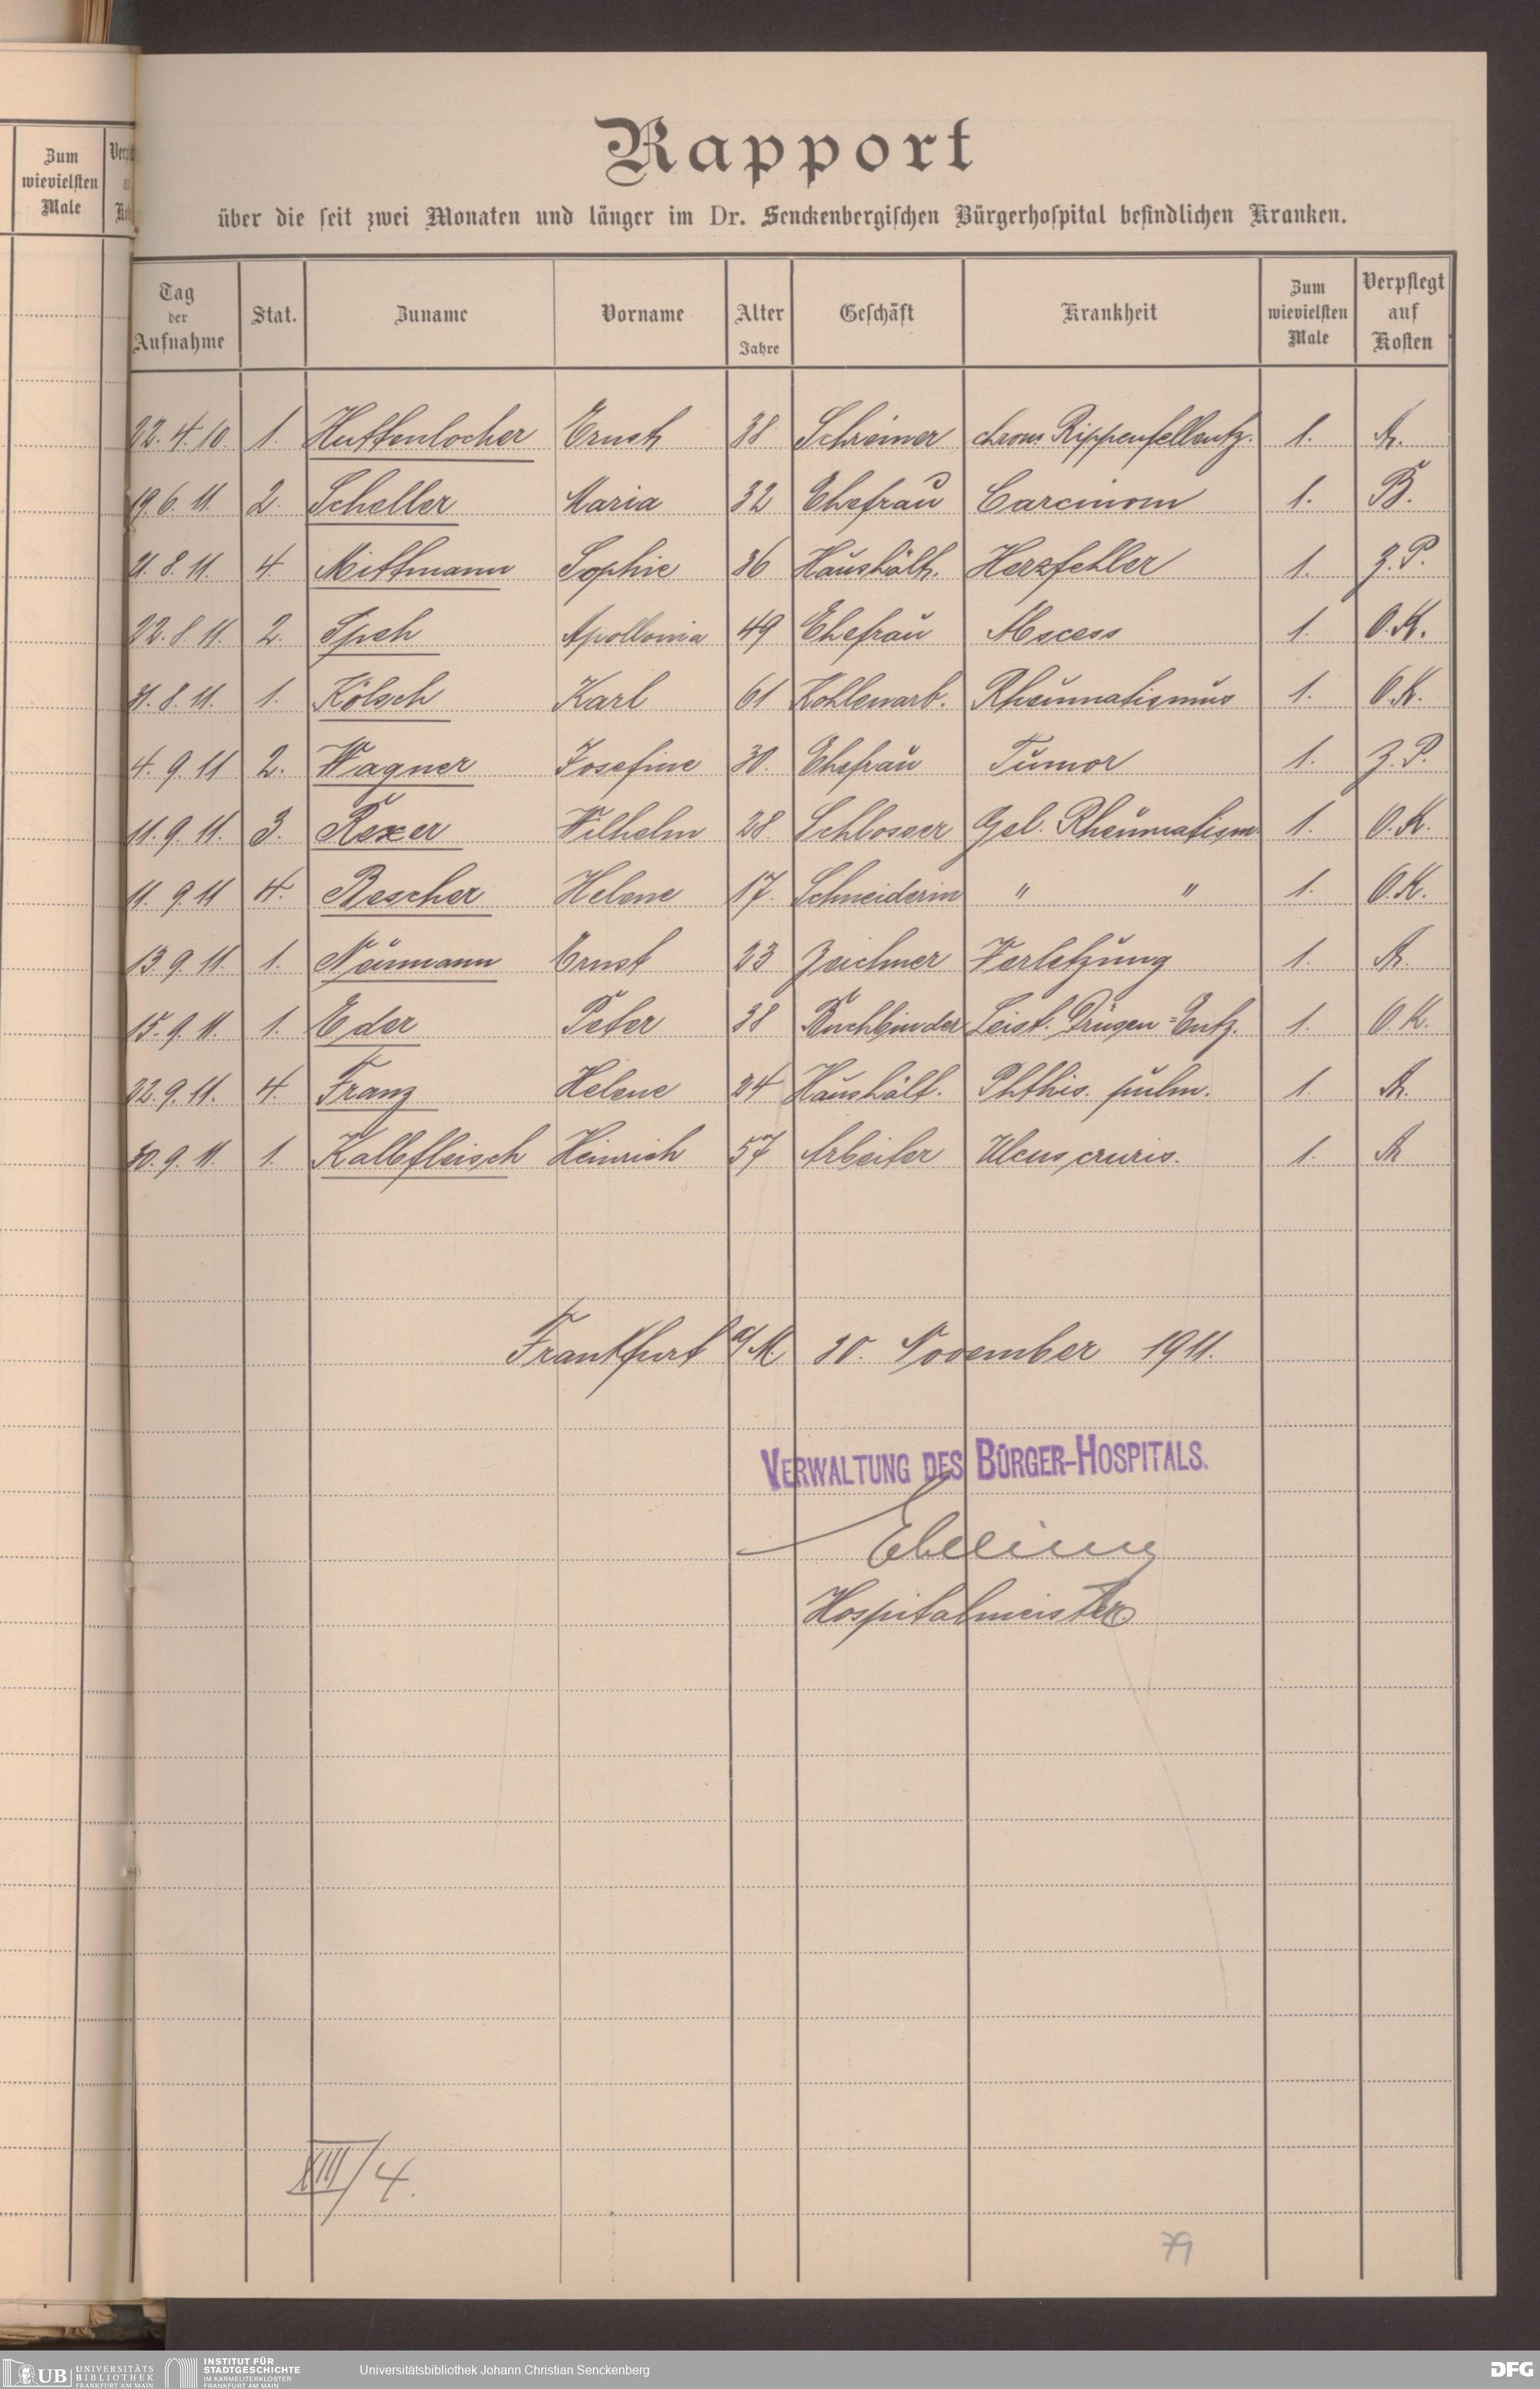 Zum
wievielsten
Male
Rapport
über die seit zwei Monaten und länger im Dr. Senckenbergischen Bürgerhospital befindlichen Kranken.
Tag der Aufnahme Stat. Zuname Vorname Alter Jahre Geschäft Krankheit Zum wievielsten Male Verpflegt auf Kosten
22. 4. 10. 1. Huttenlocher Ernst 38 Schreiner chron. Rippenfellentz. 1. A.
19. 6. 11. 2. Scheller Maria 32 Ehefrau Carcinom 1. B.
21. 8. 11. 4. Mittmann Sophie 36 Haushälth. Herzfehler 1. Z. P.
22. 8. 11. 2. Speh Apollonia 49 Ehefrau Abscess 1. O. K.
31. 8. 11. 1. Kölsch Karl 61 Kohlenarb. Rheumatismus 1. O. K.
4. 9. 11 2. Wagner Josefine 30. Ehefrau Tumor 1. Z. P.
11. 9. 11. 3. Rexer Wilhelm 28 Schlosser Gel. Rheumatism 1. O. K.
11. 9. 11 4. Bescher Helene 17. Schneiderin " " 1. O. K.
13. 9. 11. 1. Naumann Ernst 23 Zeichner Verletzung 1. A.
15. 9. 11. 1. Eder Peter 38 Buchbinder Leist. Drüsen=Entz. 1. O. K.
22. 9. 11. 4. Franz Helene 24 Haushält. Phthis. pulm. 1. A.
30. 9. 11. 1. Kalbfleisch Heinrich 57 Arbeiter Ulcus cruris. 1. A
Frankfurt a/M. 30. November 1911.
VERWALTUNG DES BÜRGER-HOSPITALS.
Ebeling
Hospitalmeister.
XIII/4.
79
UB UNIVERSITÄTS BIBLIOTHEK FRANKFURT AM MAIN
INSTITUT FÜR STADTGESCHICHTE IM KARMELITERKLOSTER FRANKFURT AM MAIN
Universitätsbibliothek Johann Christian Senckenberg
DFG